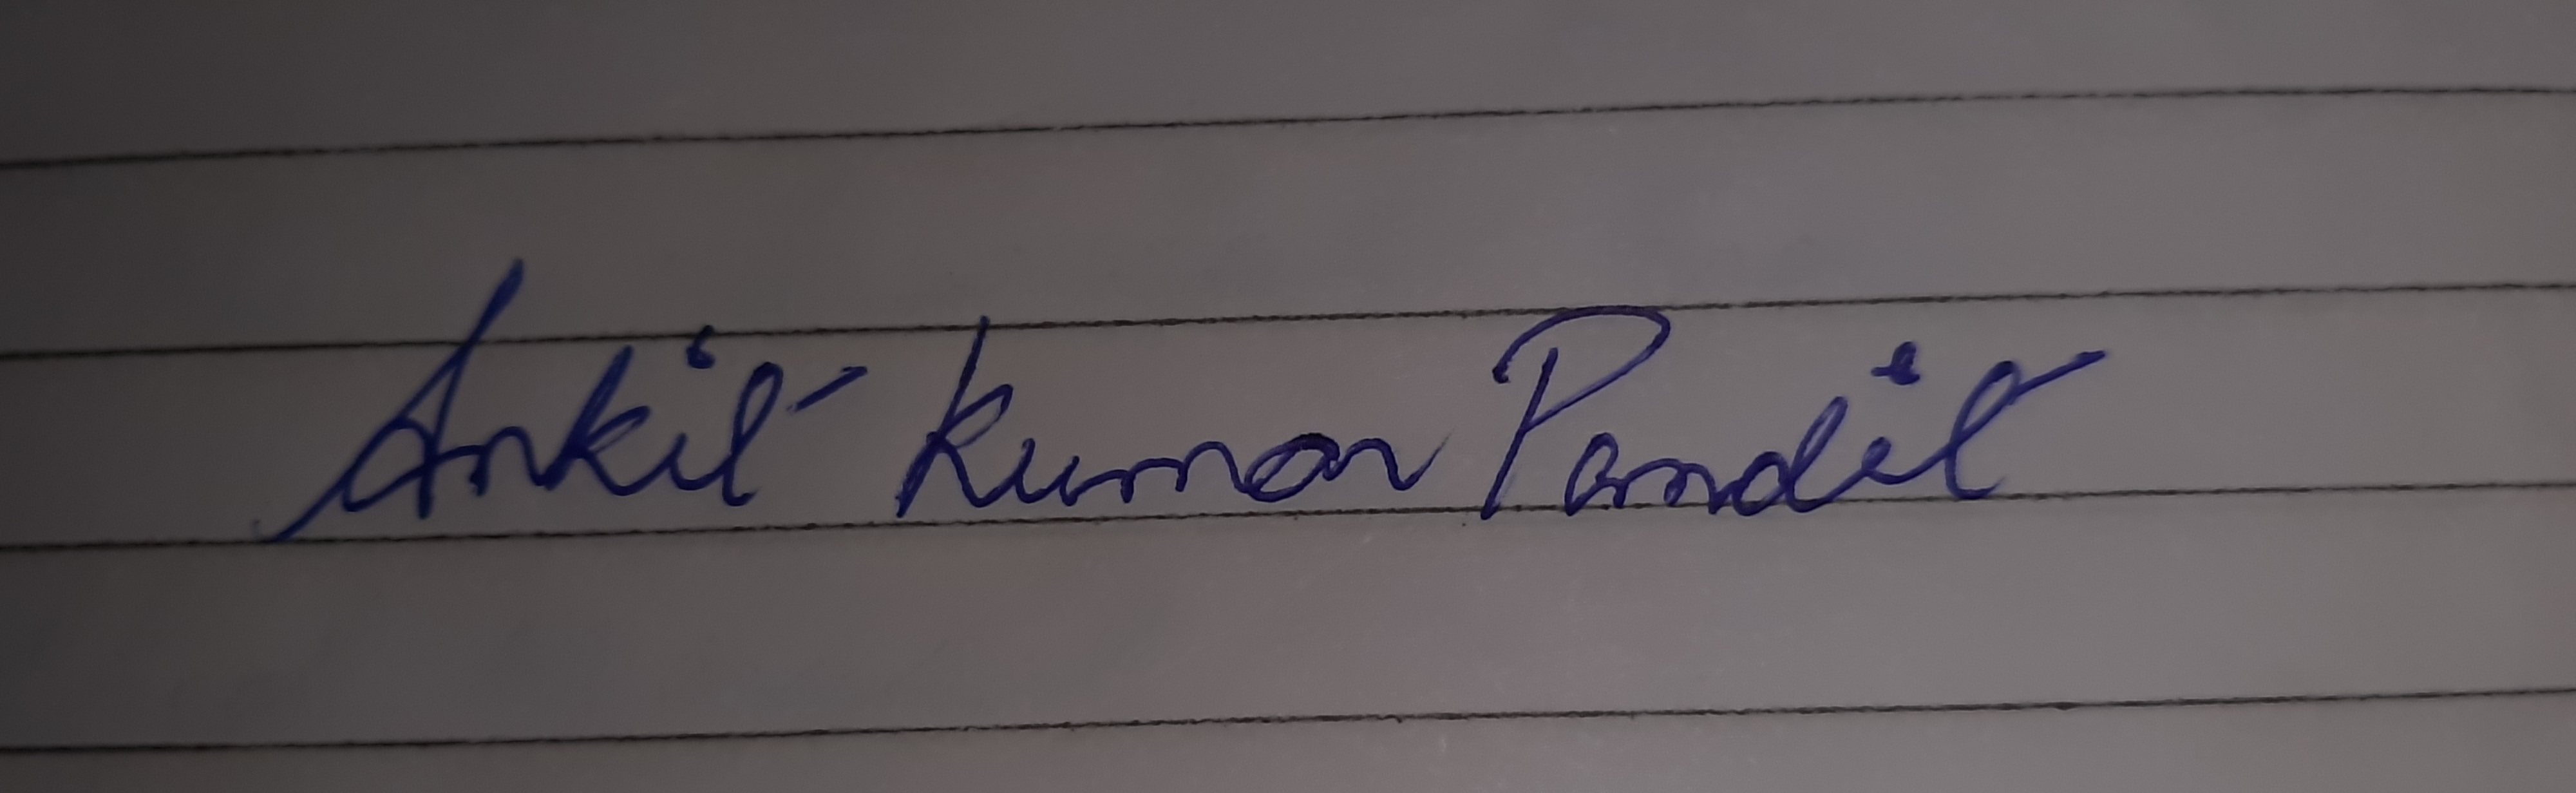 Ankit Kumar Pandit